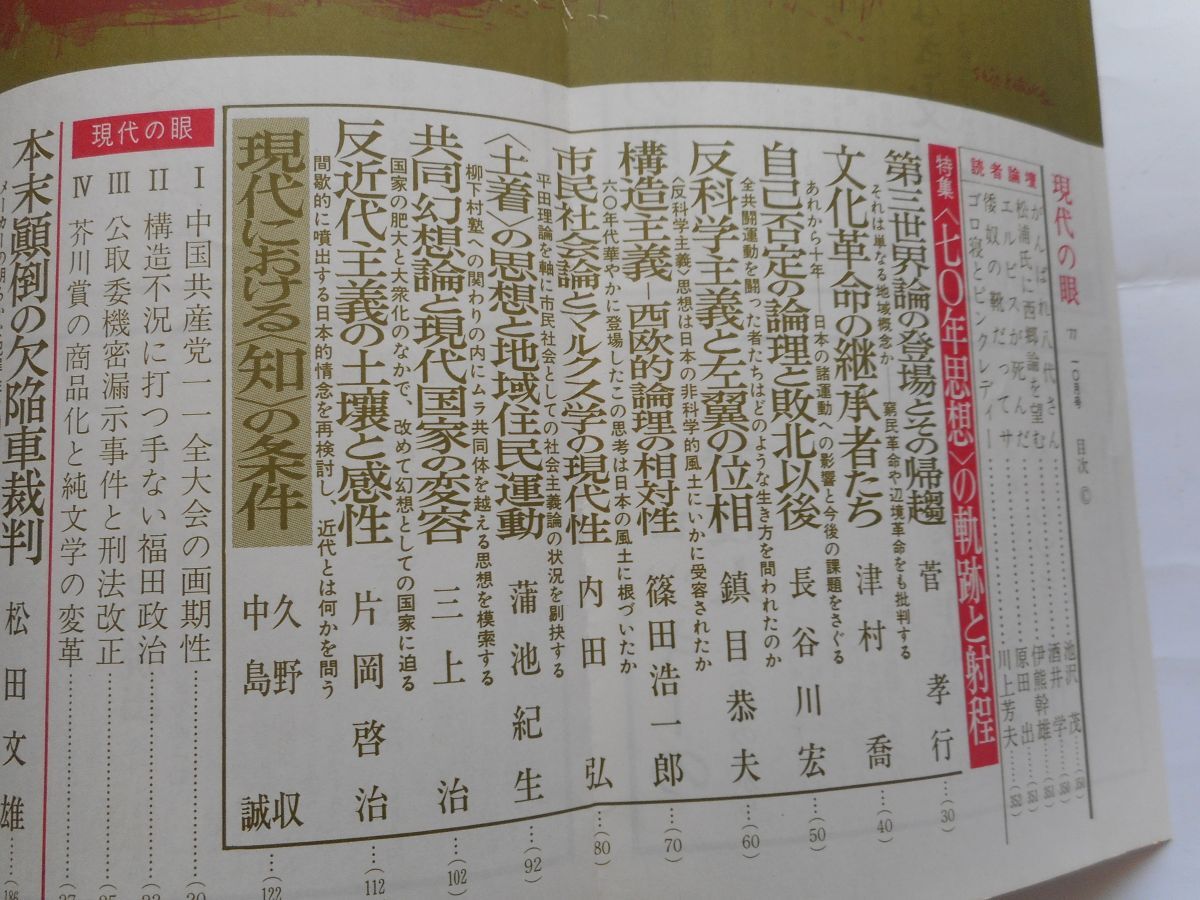 現代の眼 '77 一〇月号 目次 ©
読者論壇
がんばれ八代さん 池沢 茂 350
松浦氏に西郷論を望む 酒井 学 350
エルビスが死んだ 伊熊幹雄 351
倭奴の靴だってサ 原田 出 351
ゴロ寝とピンクレディー 川上芳夫 352
特集〈七〇年思想〉の軌跡と射程
第三世界論の登場とその帰趨 菅 孝行 (30)
それは単なる地域概念か──窮民革命や辺境革命をも批判する
文化革命の継承者たち 津村 喬 (40)
あれから十年──日本の諸運動への影響と今後の課題をさぐる
自己否定の論理と敗北以後 長谷川 宏 (50)
全共闘運動を闘った者たちはどのような生き方を問われたのか
反科学主義と左翼の位相 鎮目恭夫 (60)
〈反科学主義〉思想は日本の非科学的風土にいかに受容されたか
構造主義─西欧的論理の相対性 篠田浩一郎 (70)
六〇年代華やかに登場したこの思考は日本の風土に根づいたか
市民社会論とマルクス学の現代性 内田 弘 (80)
平田理論を軸に市民社会としての社会主義論の状況を剔抉する
〈土着〉の思想と地域住民運動 蒲池紀生 (92)
柳下村塾への関わりの内にムラ共同体を越える思想を模索する
共同幻想論と現代国家の変容 三上 治 (102)
国家の肥大と大衆化のなかで、改めて幻想としての国家に迫る
反近代主義の土壌と感性 片岡啓治 112
間歇的に噴出する日本的情念を再検討し、近代とは何かを問う
現代における〈知〉の条件 久野 収 中島 誠 122
現代の眼
Ⅰ 中国共産党一一全大会の画期性 20
Ⅱ 構造不況に打つ手ない福田政治
Ⅲ 公取委機密漏示事件と刑法改正
Ⅳ 芥川賞の商品化と純文学の変革
本末顚倒の欠陥車裁判 松田文雄 186